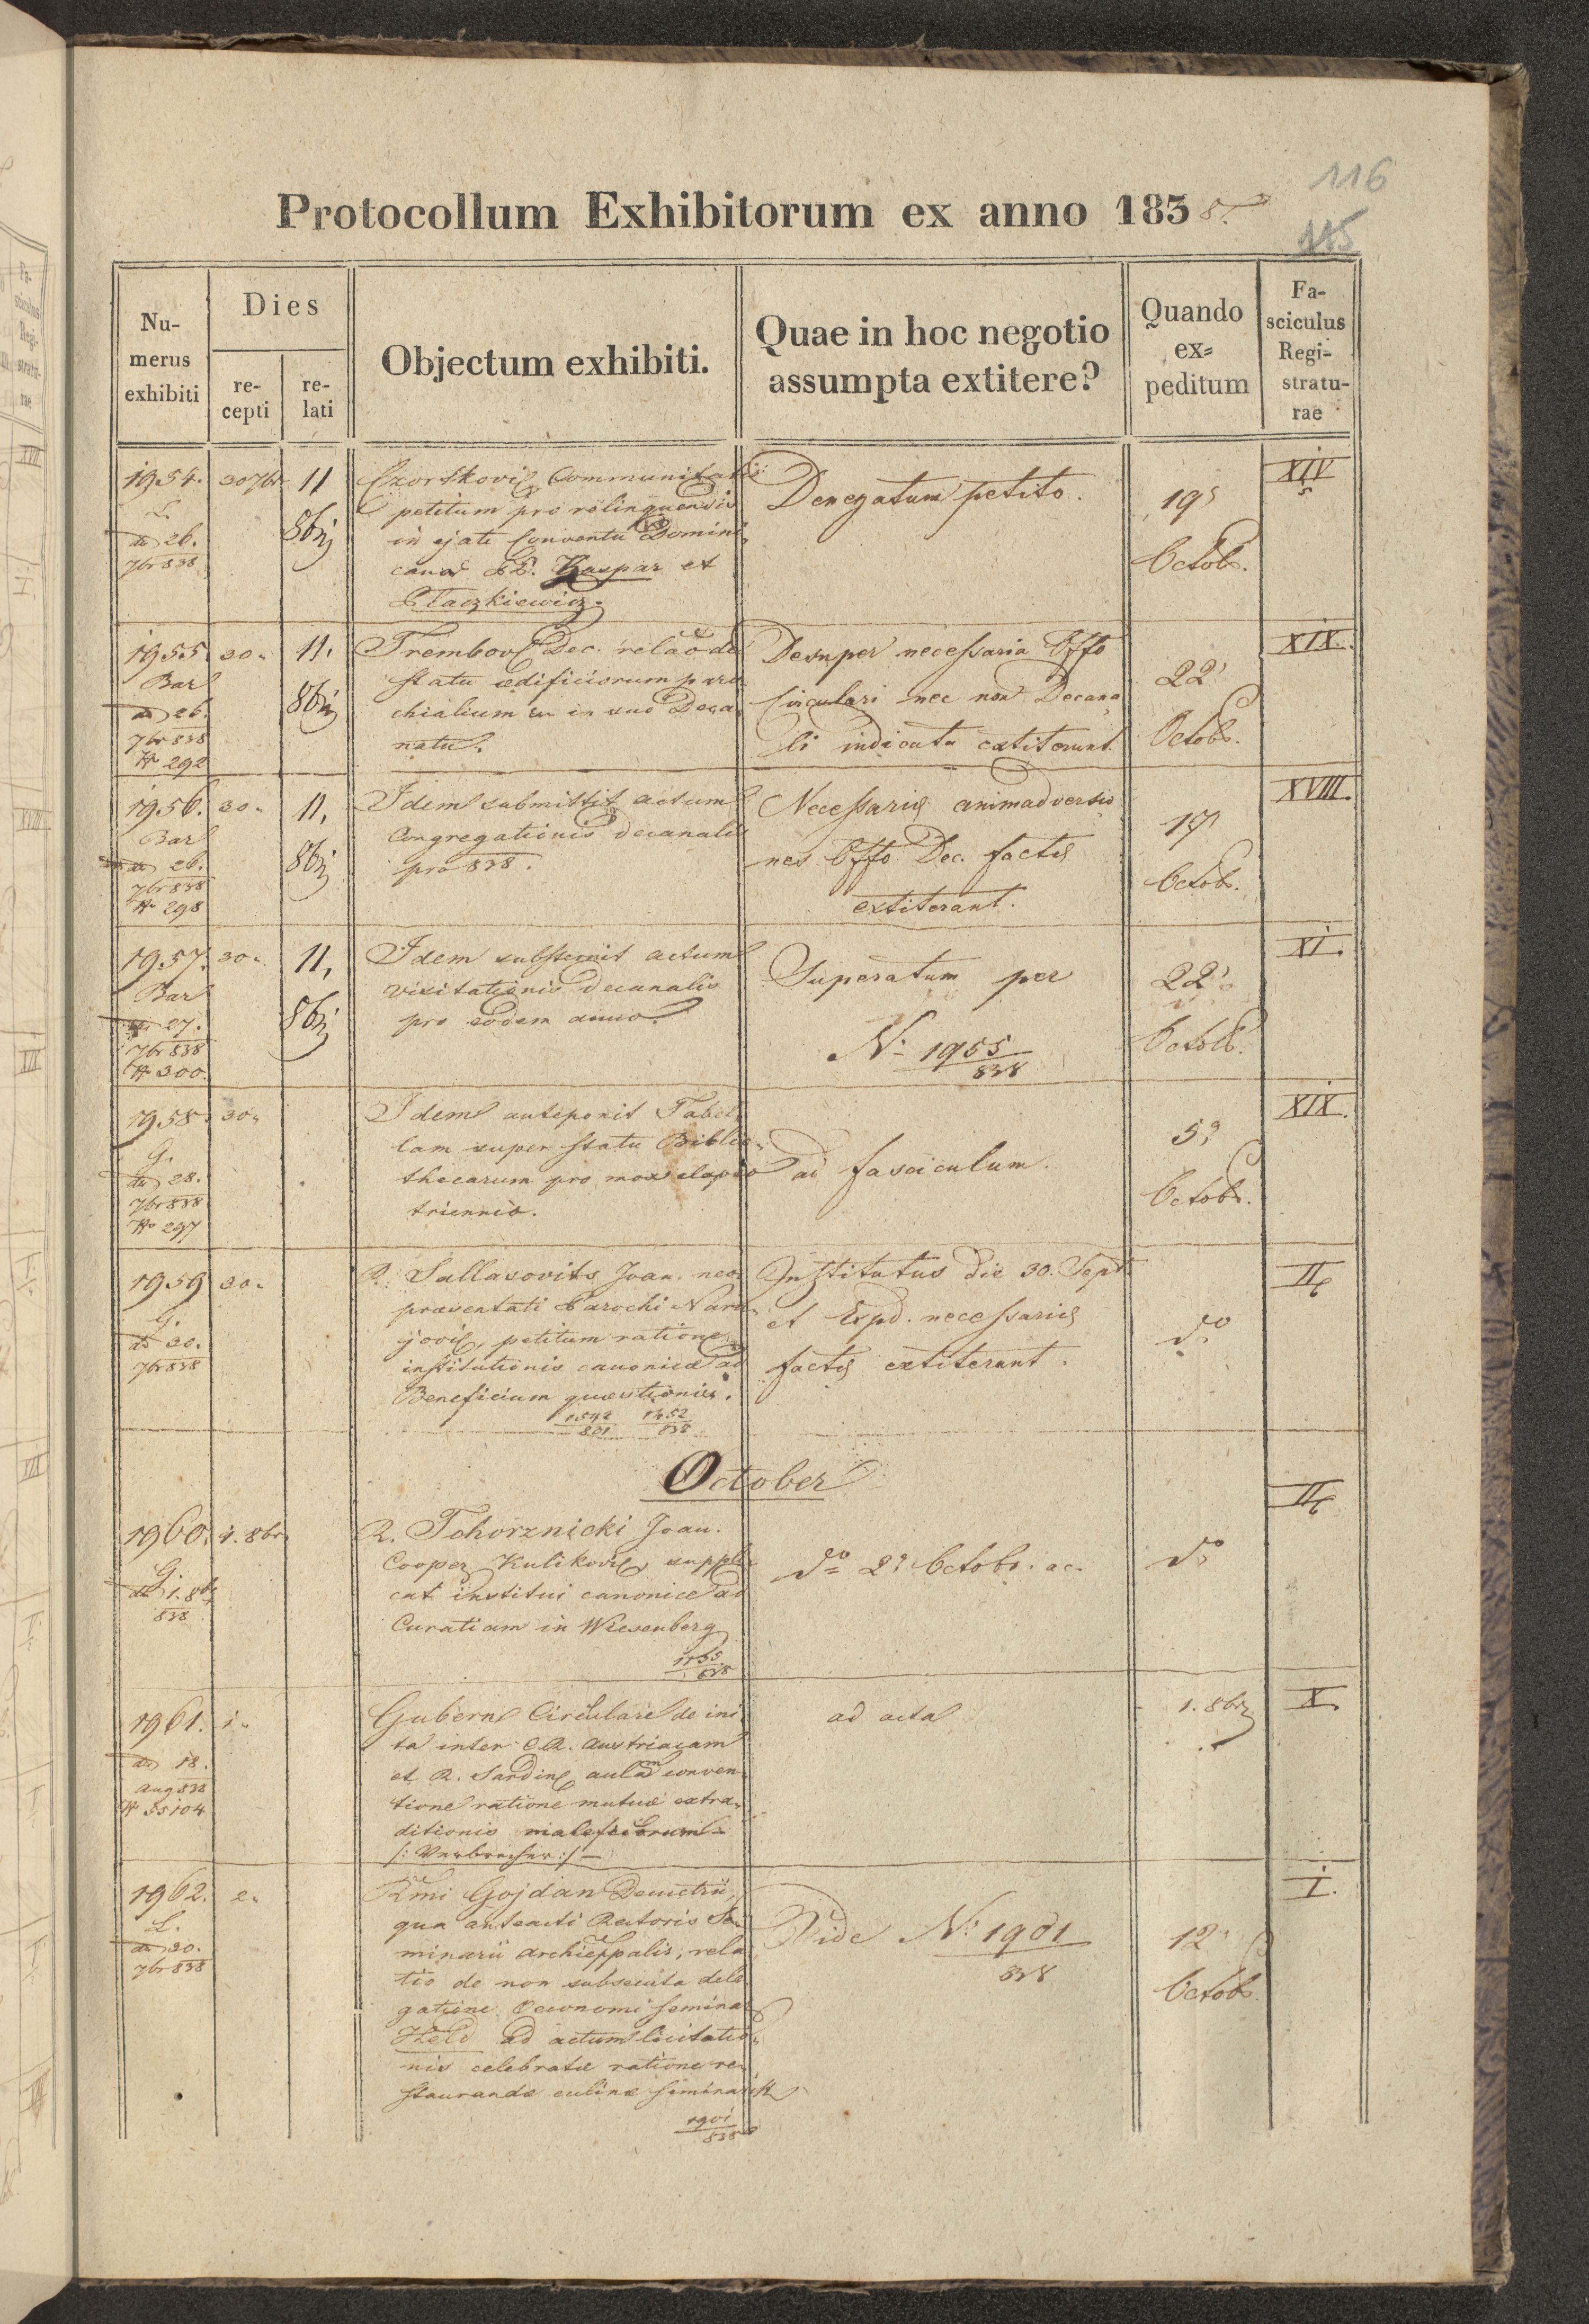 116
Protocollum Exhibitorum ex anno 1838.
115
Nu-
merus
exhibiti
Dies
re-
cepti
re-
lati
Objectum exhibiti.
Quae in hoc negotio
assumpta extitere?
Quando
ex=
peditum
Fa-
sciculus
Regi-
stratu-
rae
1954. 30 7br 11 8br
L.
dd 26.
7br 838
Czortkovi Communitatis
petitum pro relinquendis
in ejate Conventu Domini
canor PP. Kaspar et
Płaczkiewicz.
Denegatum petito.
19
Octob.
XIV
1955. 30. 11. 8br
Bar
dd 26.
7br 838
N 292
Trembov Dec. relao de
statu ædificiorum paro
chialium in suo Deca
natu.
Desuper necessaria Offo
Circulari nec non Decana
li indicata extiterunt.
22
Octob.
XIX.
1956. 30. 11. 8br
Bar
dd 26.
7br 838
N 298
Idem submittit actum
Congregationis decanalis
pro 838.
Necessariæ animadversio
nes Offo Dec. factæ
extiterant.
17
Octob.
XVIII.
1957. 30. 11. 8br
Bar
dd 27.
7br 838
N 300.
Idem substernit actum
visitationis decanalis
pro eodem anno.
Superatum per
N. 1955
838
22
Octob.
XI.
1958. 30.
G.
dd 28.
7br 838
N 297
Idem anteponit Tabel
lam super statu Biblio
thecarum pro mox elapso
triennio.
ad fasciculum.
5
Octob.
XIX.
1959 30.
G.
dd 30.
7br 838
R. Sallasovits Joan. neo
præsentati Parochi Nara
jovi, petitum ratione
institutionis canonicæ ad
Beneficium quæstionis.
1542 1452
801 838
Institutus die 30. Sept.
et Expd. necessariæ
factæ extiterunt.
do
II
October
1960. 1. 8br
G.
dd 1. 8br
838
R. Tchorznicki Joan.
Cooper Kulikovi suppli
cat institui canonice ad
Curatiam in Wiesenberg
838
do 2 Octobr. ac.
do
II
1961. 1.
dd 18.
Aug 838
N 55104
Gubern Circulare de ini
ta inter C.R. Austriacam
et R. Sardin aulam conven
tione ratione mutuæ extra
ditionis maleficorum
/: Verbrecher :/
ad acta
1. 8br
X
1962. 2.
L.
dd 20.
7br 838
Rmi Gojdan Demetrii,
qua anteacti Rectoris Se
minarii archieppalis, rela
tio de non subsecuta dele
gatione Oeconomi Seminar
Held ad actum licitatio
nis celebratæ ratione re
staurandæ culinæ seminarii
1901
838
Vide N. 1901
838
12
Octob.
I.